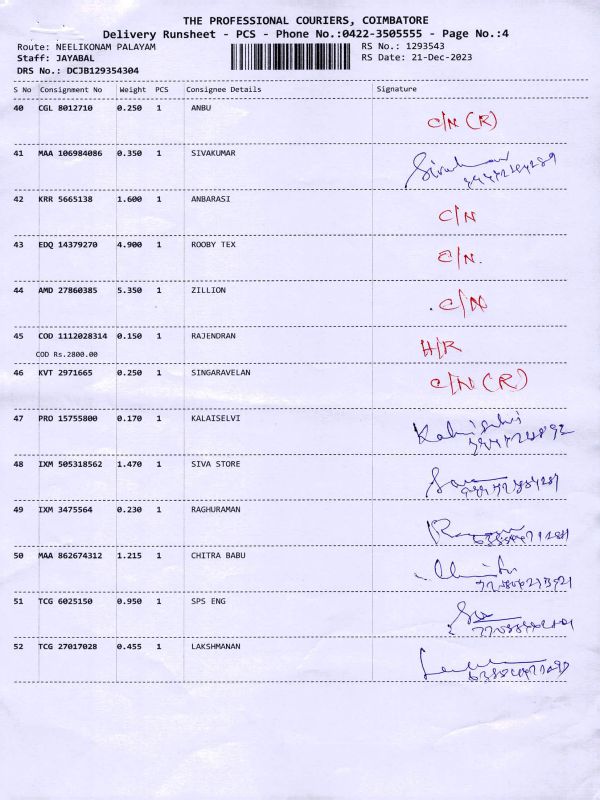 THE PROFESSIONAL COURIERS, COIMBATORE
Delivery Runsheet - PCS - Phone No.:0422-3505555 - Page No.:4
Route: NEELIKONAM PALAYAM RS No.: 1293543
Staff: JAYABAL RS Date: 21-Dec-2023
DRS No.: DCJB129354304
S No Consignment No Weight PCS Consignee Details Signature
40 CGL 8012710 0.250 1 ANBU C/N (R)
41 MAA 106984086 0.350 1 SIVAKUMAR
42 KRR 5665138 1.600 1 ANBARASI C/N
43 EDQ 14379270 4.900 1 ROOBY TEX C/N.
44 AMD 27860385 5.350 1 ZILLION C/N
45 COD 1112028314 0.150 1 RAJENDRAN H/R
COD Rs.2800.00
46 KVT 2971665 0.250 1 SINGARAVELAN C/N (R)
47 PRO 15755800 0.170 1 KALAISELVI
48 IXM 505318562 1.470 1 SIVA STORE
49 IXM 3475564 0.230 1 RAGHURAMAN
50 MAA 862674312 1.215 1 CHITRA BABU
51 TCG 6025150 0.950 1 SPS ENG
52 TCG 27017028 0.455 1 LAKSHMANAN